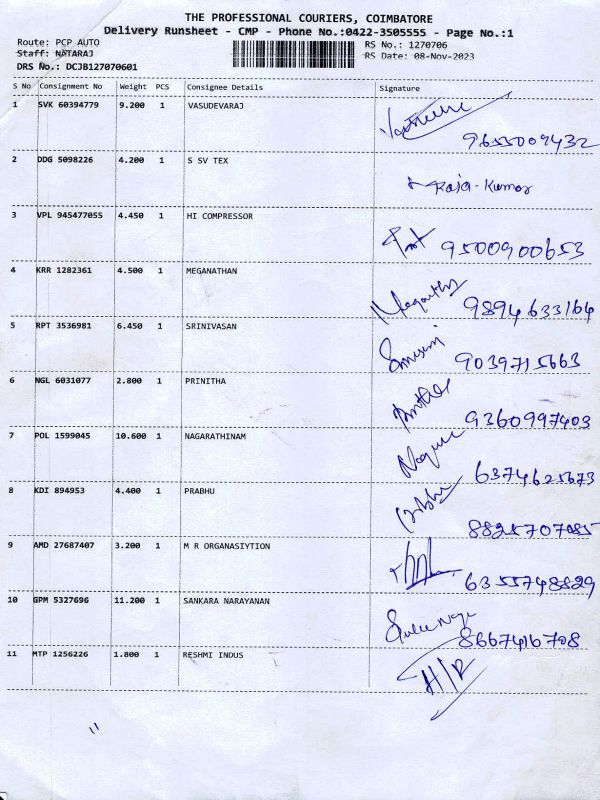 THE PROFESSIONAL COURIERS, COIMBATORE
Delivery Runsheet - CMP - Phone No.:0422-3505555 - Page No.:1
Route: PCP AUTO RS No.: 1270706
Staff: NATARAJ RS Date: 08-Nov-2023
DRS No.: DCJB127070601
S No Consignment No Weight PCS Consignee Details Signature
1 SVK 60394779 9.200 1 VASUDEVARAJ
9655009432
2 DDG 5098226 4.200 1 S SV TEX
Raja-Kumar
3 VPL 945477055 4.450 1 HI COMPRESSOR
9500900653
4 KRR 1282361 4.500 1 MEGANATHAN
9894633164
5 RPT 3536981 6.450 1 SRINIVASAN
9039715663
6 NGL 6031077 2.800 1 PRINITHA
9360997403
7 POL 1599045 10.600 1 NAGARATHINAM
6374625673
8 KDI 894953 4.400 1 PRABHU
8825707085
9 AMD 27687407 3.200 1 M R ORGANASIYTION
6355748829
10 GPM 5327696 11.200 1 SANKARA NARAYANAN
8667416708
11 MTP 1256226 1.800 1 RESHMI INDUS
H/R
11